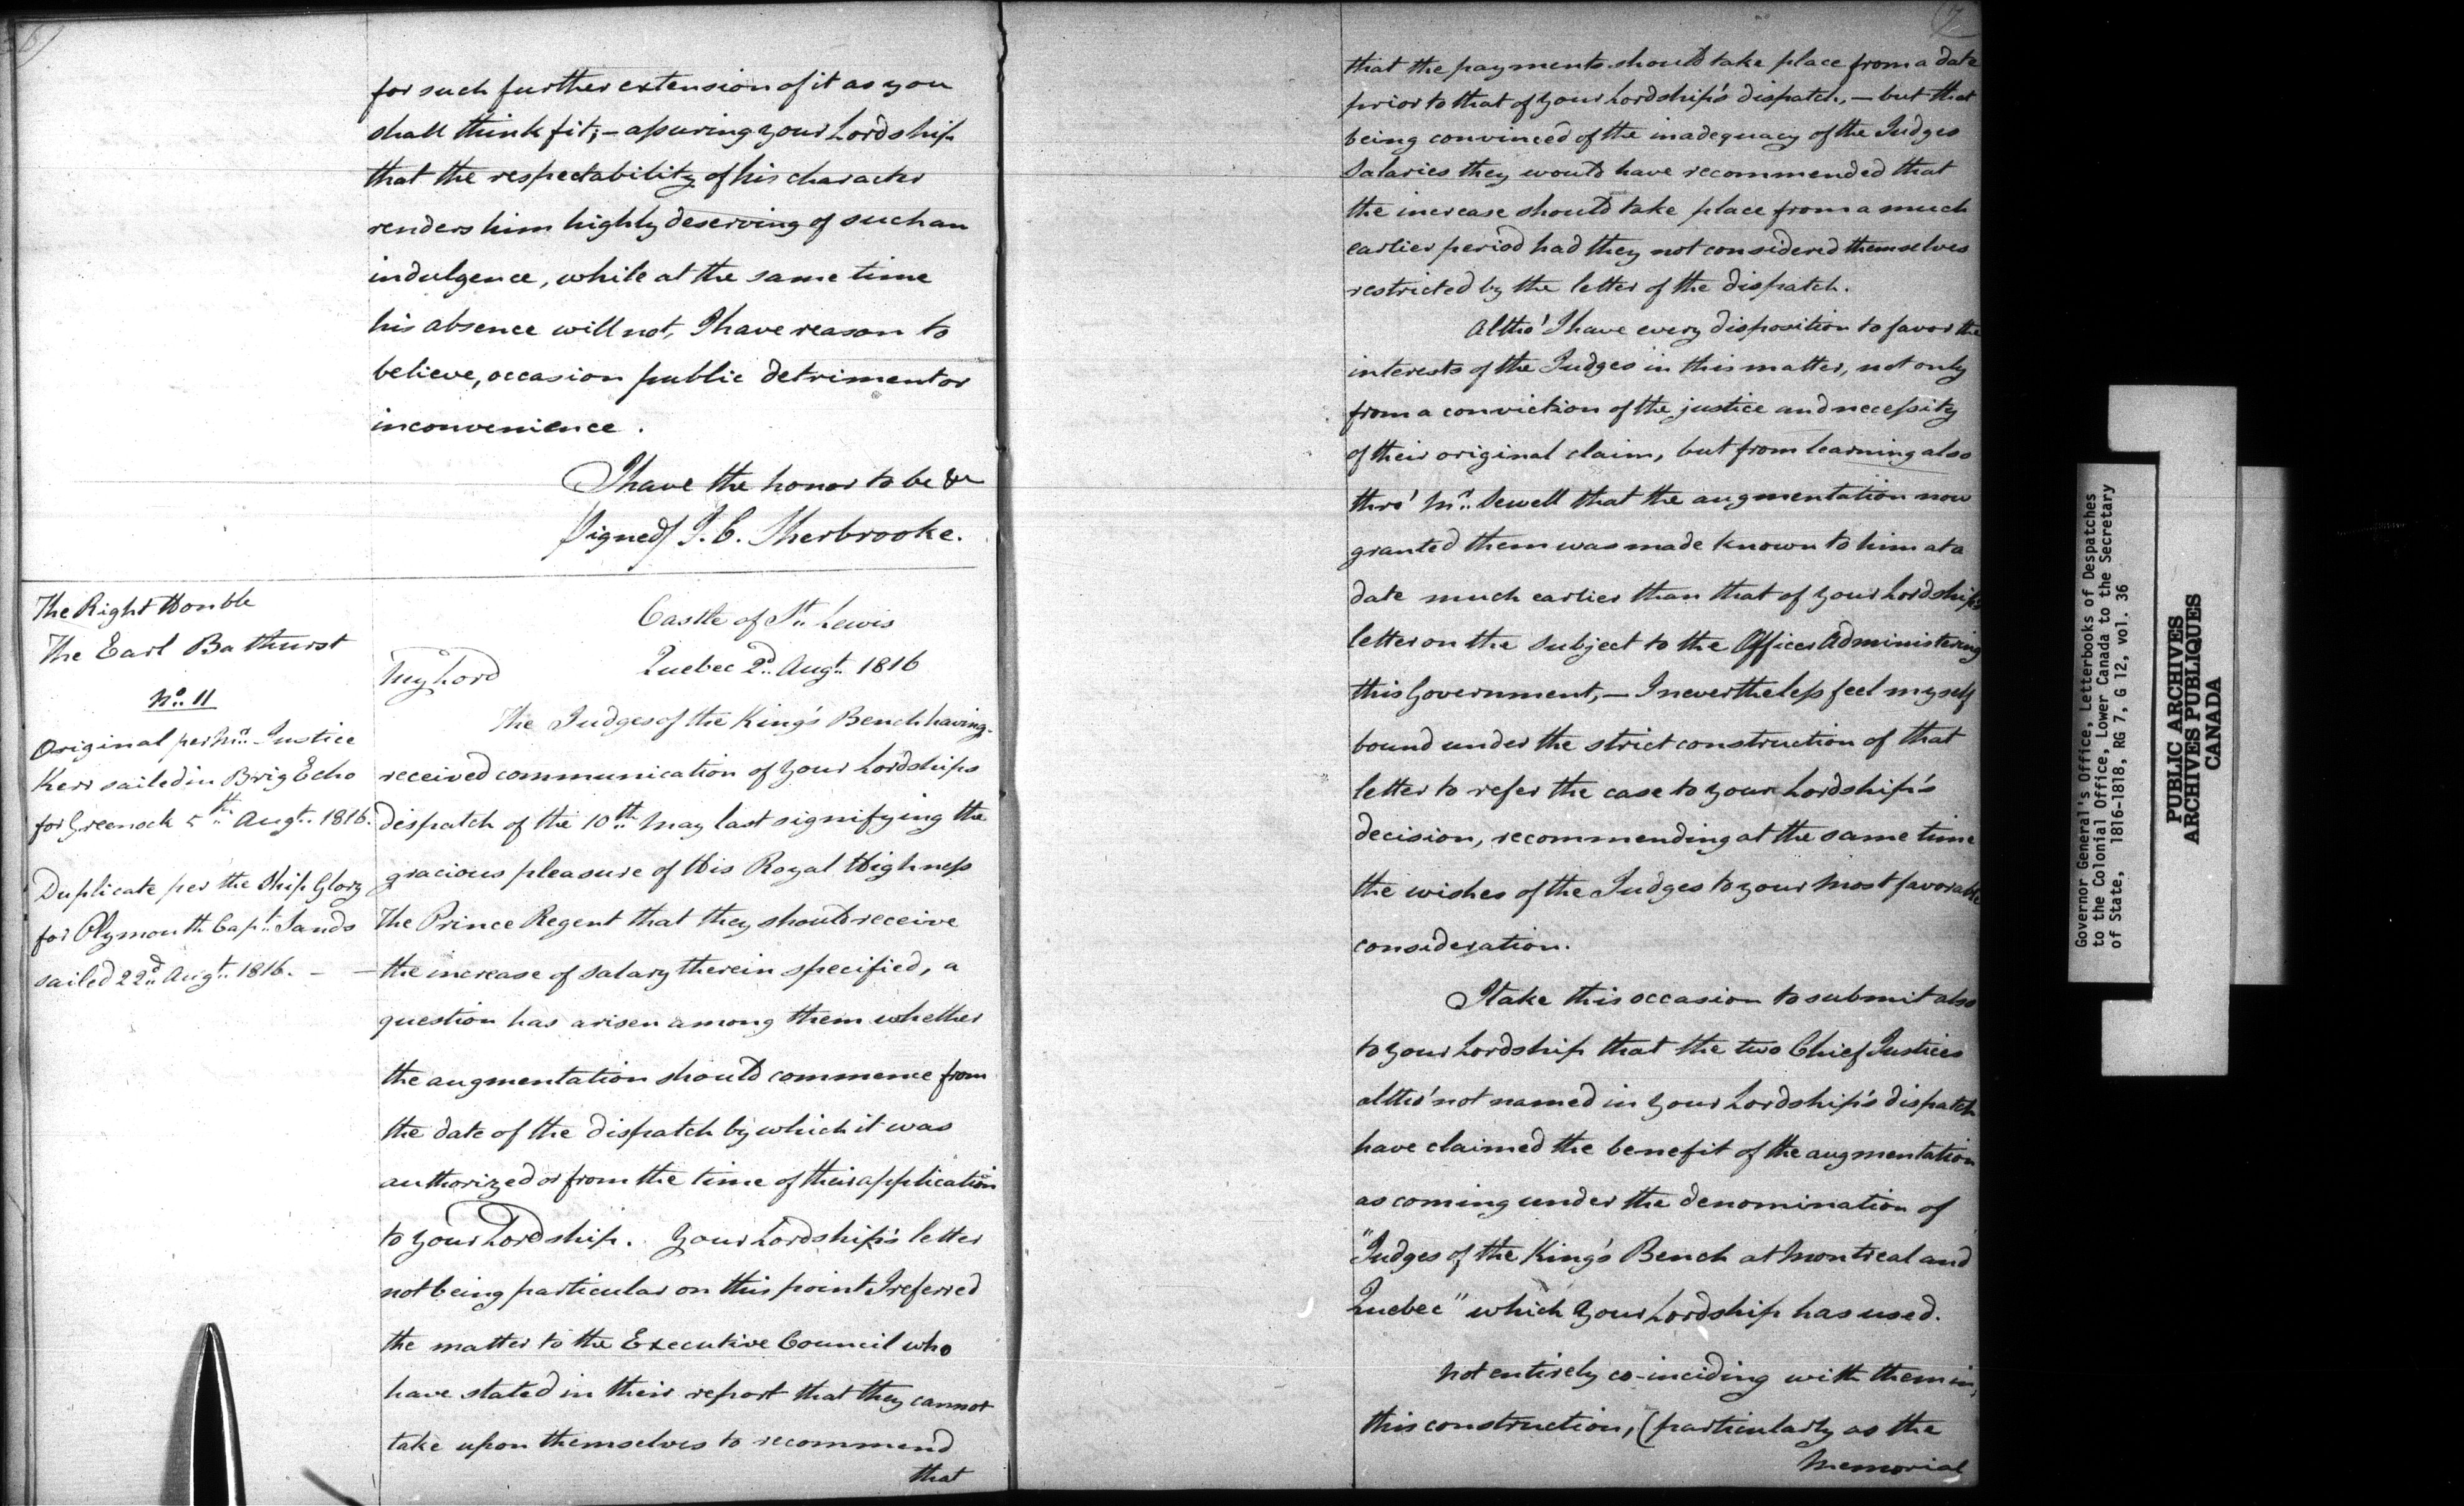 6)
for such further extension of it as you
shall think fit; – assuring your Lordship
that the respectability of his character
renders him highly deserving of such an
indulgence, while at the same time
his absence will not, I have reason to
believe, occasion public detriment or
inconvenience.
I have the honor to be &c
Signed/ J. C. Sherbrooke.
The Right Honble
The Earl Bathurst
No. 11
Original per Mr. Justice
Kerr sailed in Brig Echo
for Greenock 5th Augt. 1816.
Duplicate per the Ship Glory
for Plymouth Capt. Sands
sailed 22d Augt. 1816. –
Castle of St. Lewis
Quebec 2d. Augt. 1816
My Lord
The Judges of the King's Bench having
received communication of your Lordships
despatch of the 10th. May last signifying the
gracious pleasure of His Royal Highness
The Prince Regent that they should receive
the increase of salary therein specified, a
question has arisen among them whether
the augmentation should commence from
the date of the dispatch by which it was
authorized or from the time of their application
to your Lordship. Your Lordship's letter
not being particular on this point I referred
the matter to the Executive Council who
have stated in their report that they cannot
take upon themselves to recommend
that
(7
that the payments should take place from a date
prior to that of your Lordship's dispatch, – but that
being convinced of the inadequacy of the Judges
Salaries they would have recommended that
the increase should take place from a much
earlier period had they not considered themselves
restricted by the letter of the dispatch.
Altho' I have every disposition to favor the
interests of the Judges in this matter, not only
from a conviction of the justice and necessity
of their original claim, but from learning also
thro' Mr. Sewell that the augmentation now
granted them was made known to him at a
date much earlier than that of your Lordship's
letter on the subject to the Officer Administering
this Government, – I nevertheless feel myself
bound under the strict construction of that
letter to refer the case to your Lordship's
decision, recommending at the same time
the wishes of the Judges to your most favorable
consideration.
I take this occasion to submit also
to your Lordship that the two Chief Justices
altho' not named in your Lordship's dispatch
have claimed the benefit of the augmentation
as coming under the denomination of
"Judges of the King's Bench at Montreal and
Quebec" which your Lordship has used.
Not entirely co-inciding with them in
this construction, (particularly as the
Memorial
Governor General's Office, Letterbooks of Despatches
to the Colonial Office, Lower Canada to the Secretary
of State, 1816-1818, RG 7, G 12, vol. 36
PUBLIC ARCHIVES
ARCHIVES PUBLIQUES
CANADA